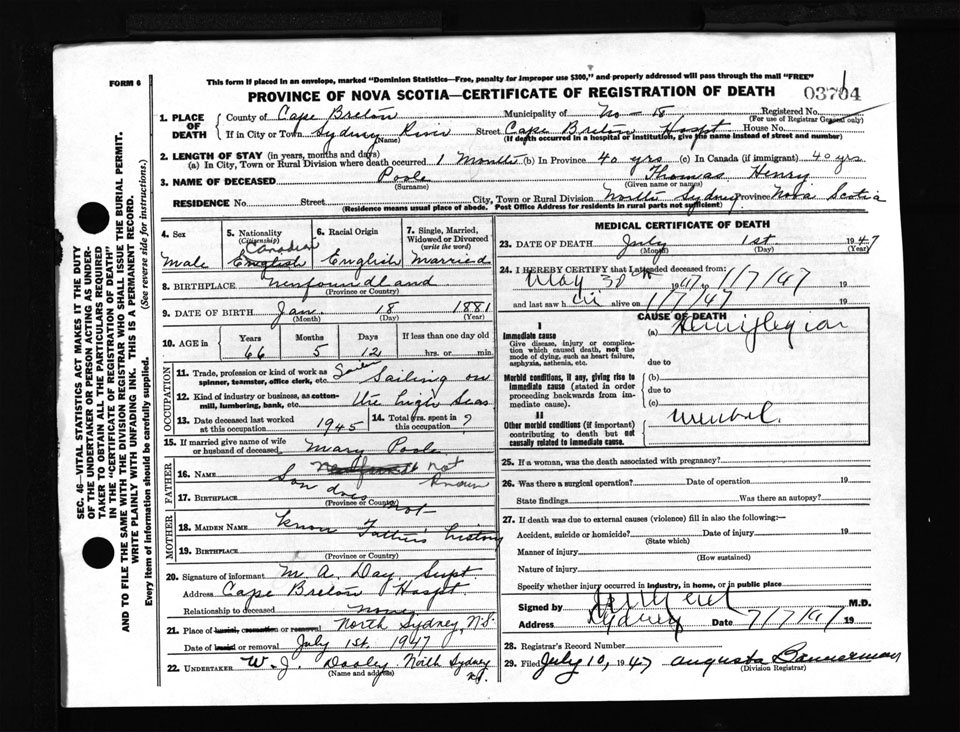 FORM 6
This form if placed in an envelope, marked "Dominion Statistics—Free, penalty for improper use $300," and properly addressed will pass through the mail "FREE"
PROVINCE OF NOVA SCOTIA—CERTIFICATE OF REGISTRATION OF DEATH
03704
SEC. 46—VITAL STATISTICS ACT MAKES IT THE DUTY
OF THE UNDERTAKER OR PERSON ACTING AS UNDER-
TAKER TO OBTAIN ALL THE PARTICULARS REQUIRED
IN THE "CERTIFICATE OF REGISTRATION OF DEATH"
AND TO FILE THE SAME WITH THE DIVISION REGISTRAR WHO SHALL ISSUE THE BURIAL PERMIT.
WRITE PLAINLY WITH UNFADING INK. THIS IS A PERMANENT RECORD.
Every item of information should be carefully supplied. (See reverse side for instructions.)
1. PLACE OF DEATH
County of Cape Breton Municipality of No - 18 Registered No.
(For use of Registrar General only)
If in City or Town Sydney River Street Cape Breton Hospt House No.
(Name) (If death occurred in a hospital or institution, give the name instead of street and number)
2. LENGTH OF STAY (in years, months and days)
(a) In City, Town or Rural Division where death occurred 1 Months (b) In Province 40 yrs (c) In Canada (if immigrant) 40 yrs
3. NAME OF DECEASED Poole Thomas Henry
(Surname) (Given name or names)
RESIDENCE No. Street City, Town or Rural Division North Sydney Province Nova Scotia
(Residence means usual place of abode. Post Office Address for residents in rural parts not sufficient)
4. Sex Male
5. Nationality (Citizenship) Canadian English
6. Racial Origin English
7. Single, Married, Widowed or Divorced (write the word) Married
8. BIRTHPLACE Newfoundland
(Province or Country)
9. DATE OF BIRTH Jan. 18 1881
(Month) (Day) (Year)
10. AGE in Years Months Days If less than one day old
66 5 12 hrs. or min.
OCCUPATION
11. Trade, profession or kind of work as spinner, teamster, office clerk, etc. Sailor Sailing on
12. Kind of industry or business, as cotton-mill, lumbering, bank, etc. the high Seas
13. Date deceased last worked at this occupation 1945
14. Total yrs. spent in this occupation ?
15. If married give name of wife or husband of deceased Mary Poole
FATHER
16. Name not Known
17. BIRTHPLACE Son does not
(Province or Country)
MOTHER
18. MAIDEN NAME know Father's history
19. BIRTHPLACE
(Province or Country)
20. Signature of informant M. A. Day, Supt.
Address Cape Breton Hospt.
Relationship to deceased none
21. Place of burial, cremation or removal North Sydney, N.S.
Date of burial or removal July 1st, 1947
22. UNDERTAKER W. J. Dooley North Sydney N.S.
(Name and address)
MEDICAL CERTIFICATE OF DEATH
23. DATE OF DEATH July 1st 1947
(Month) (Day) (Year)
24. I HEREBY CERTIFY that I attended deceased from:
May 30th 1947 to 1/7/47 19
and last saw h im alive on 1/7/47 19
CAUSE OF DEATH
I
Immediate cause (a) Hemiplegia
Give disease, injury or complication which caused death, not the mode of dying, such as heart failure, asphyxia, asthenia, etc.
due to
Morbid conditions, if any, giving rise to immediate cause (stated in order proceeding backwards from immediate cause).
(b)
due to
(c)
II
Other morbid conditions (if important) contributing to death but not causally related to immediate cause.
25. If a woman, was the death associated with pregnancy?
26. Was there a surgical operation? Date of operation 19
State findings Was there an autopsy?
27. If death was due to external causes (violence) fill in also the following:—
Accident, suicide or homicide? Date of injury 19
(State which)
Manner of injury
(How sustained)
Nature of injury
Specify whether injury occurred in industry, in home, or in public place
Signed by M.D.
Address Sydney Date 7/7/47 19
28. Registrar's Record Number
29. Filed July 10, 1947 Augusta Bannerman
(Division Registrar)